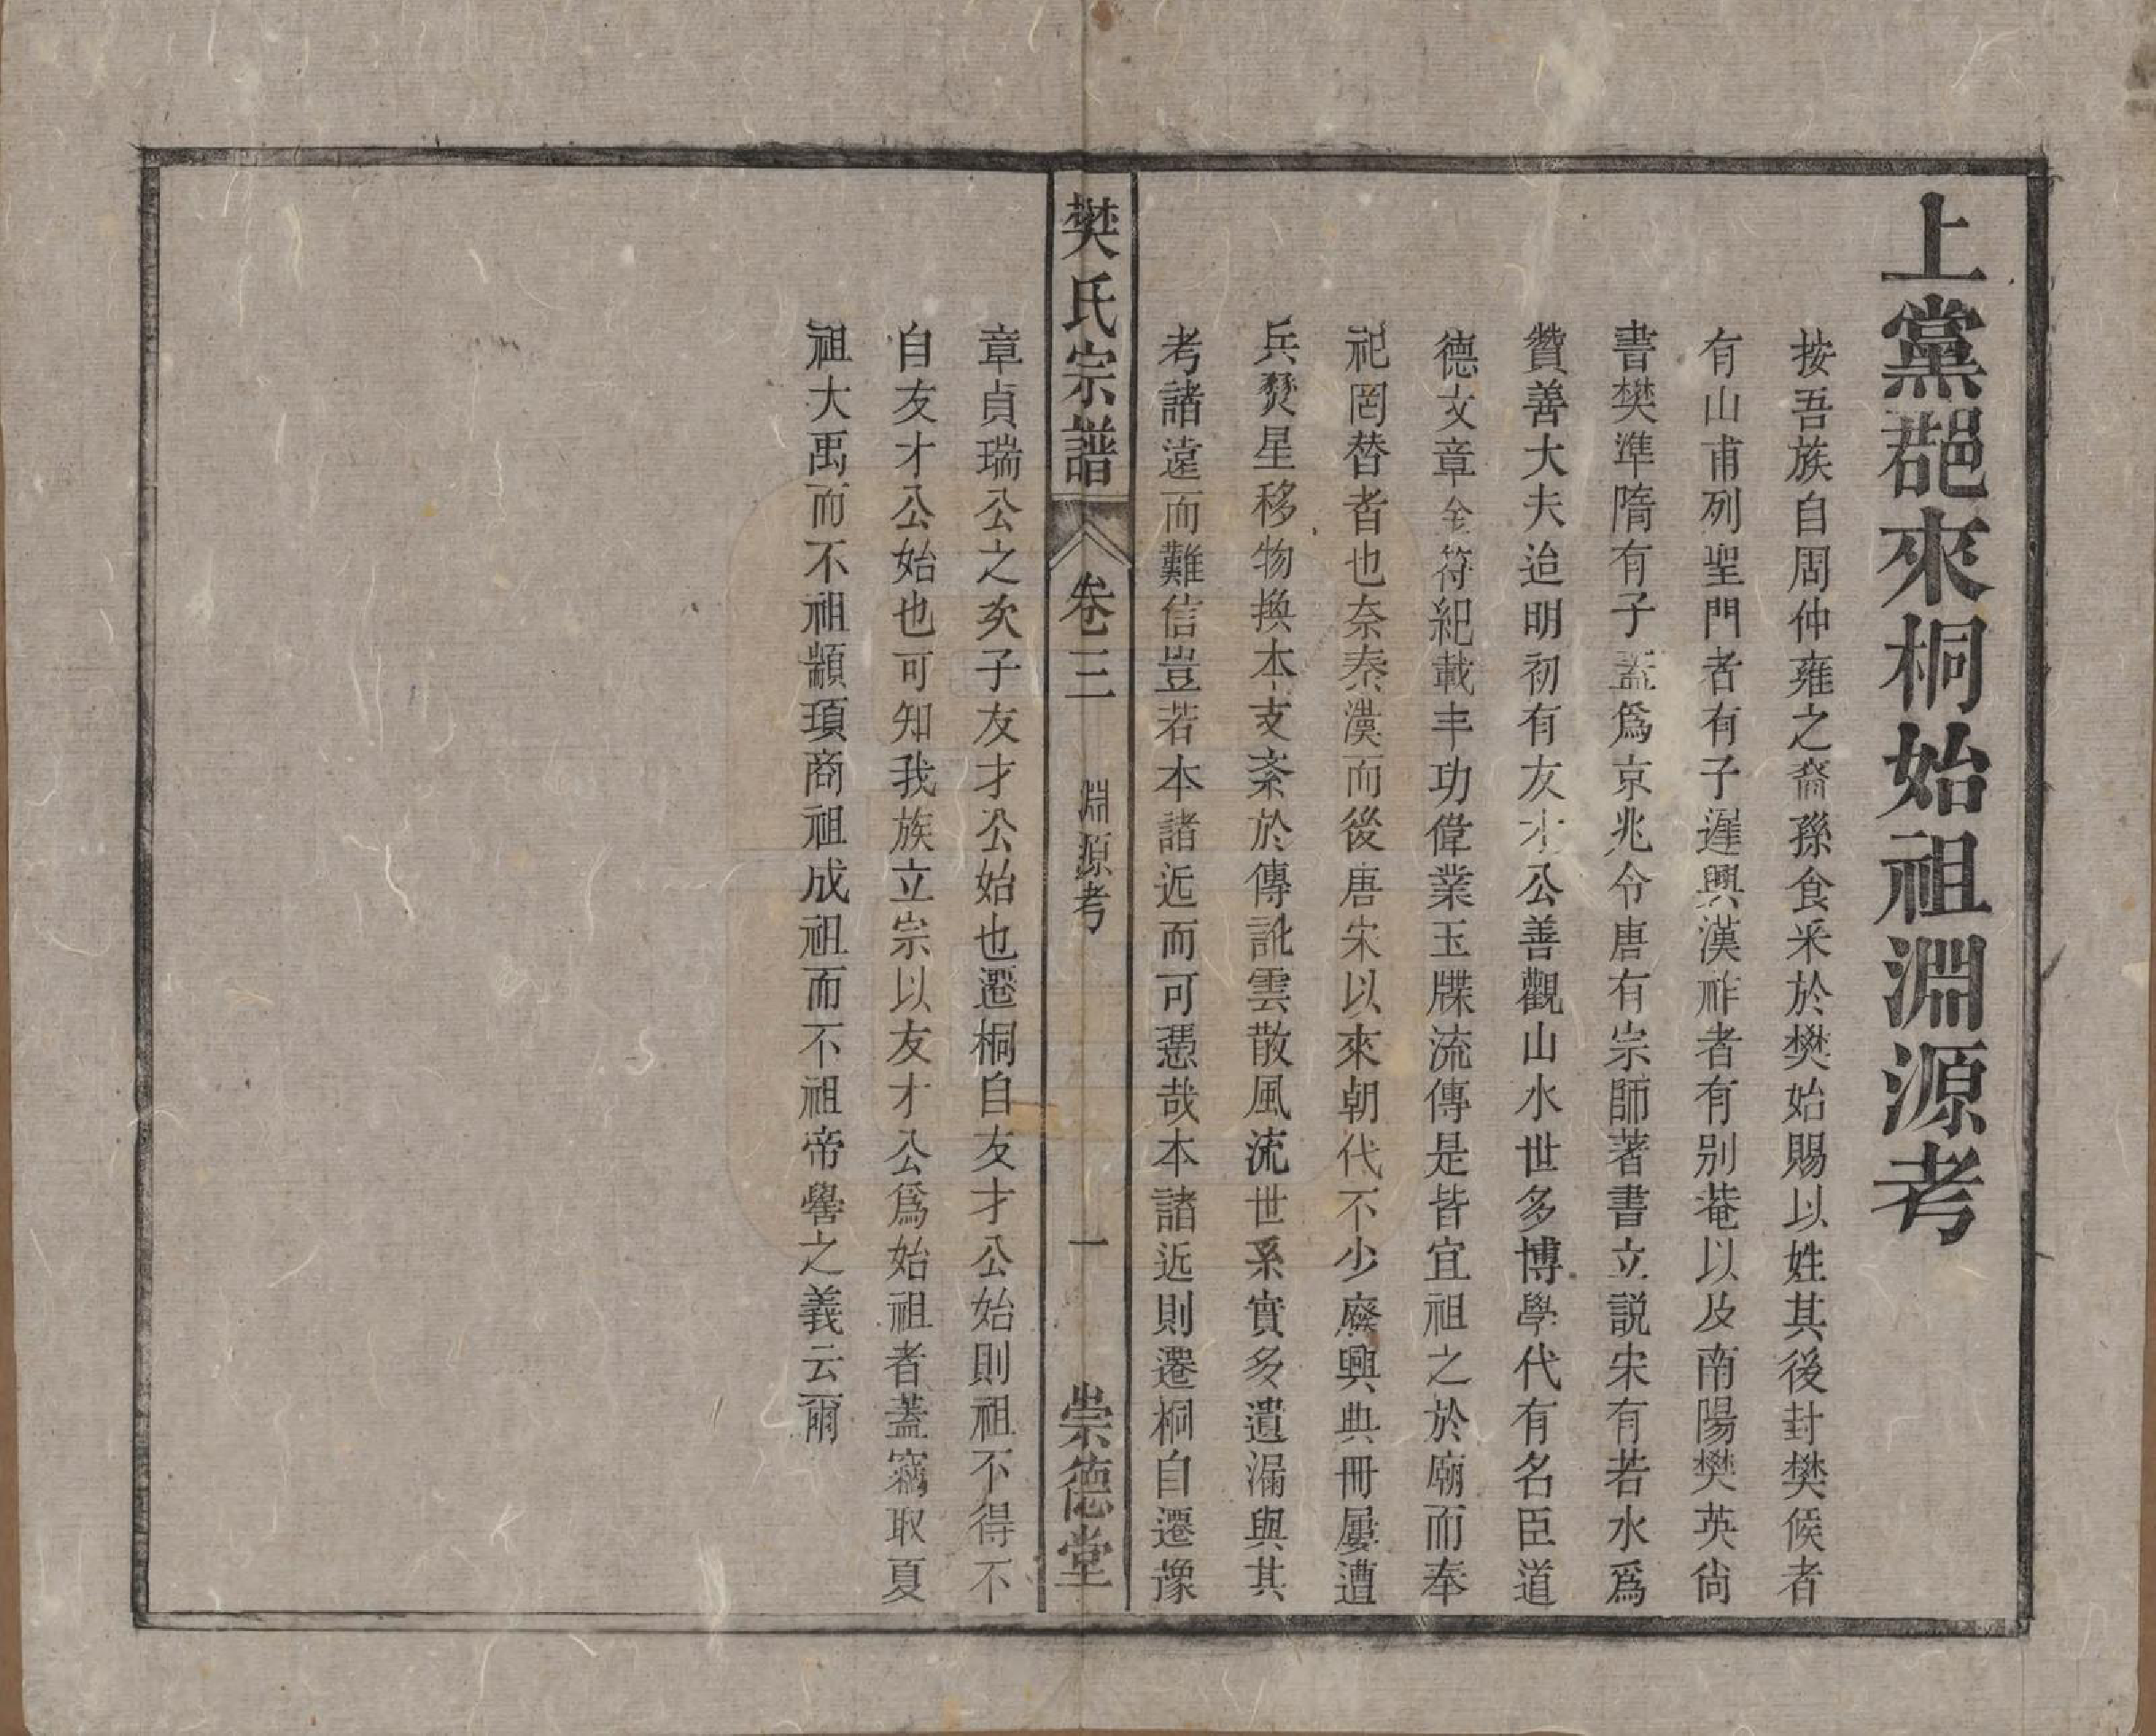 上黨郡來桐始祖淵源考
按吾族自周仲雍之裔孫食采於樊始賜以姓其後封樊侯者
有山甫列聖門者有子遲興漢祚者有别菴以及南陽樊英尙
書樊準隋有子蓋爲京兆令唐有宗師著書立説宋有若水爲
贊善大夫迨明初有友才公善觀山水世多博學代有名臣道
德文章金符紀載丰功偉業玉牒流傳是皆宜祖之於廟而奉
祀罔替者也奈秦漢而後唐宋以來朝代不少廢興典冊屢遭
兵燹星移物換本支紊於傳訛雲散風流世系實多遺漏與其
考諸遠而難信豈若本諸近而可慿哉本諸近則遷桐自遷豫
樊氏宗譜
卷三
淵源考
一
崇德堂
章貞瑞公之次子友才公始也遷桐自友才公始則祖不得不
自友才公始也可知我族立宗以友才公爲始祖者蓋竊取夏
祖大禹而不祖顓頊商祖成祖而不祖帝嚳之義云爾